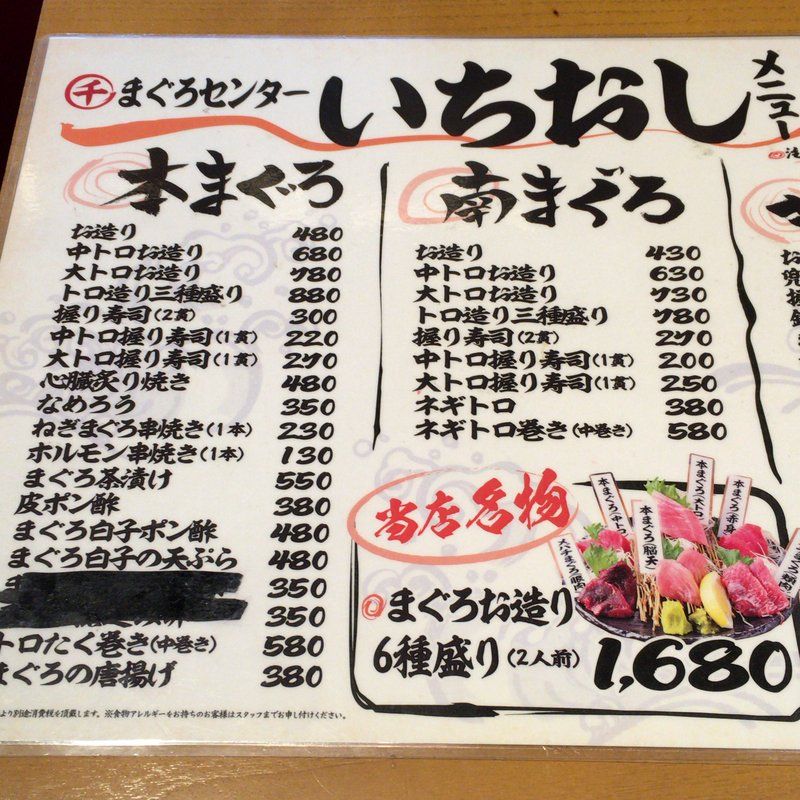 千 まぐろセンター いちおし メニュー
本まぐろ
お造り 480
中トロお造り 680
大トロお造り 780
トロ造り三種盛り 880
握り寿司(2貫) 300
中トロ握り寿司(1貫) 220
大トロ握り寿司(1貫) 270
心臓炙り焼き 480
なめろう 350
ねぎまぐろ串焼き(1本) 230
ホルモン串焼き(1本) 130
まぐろ茶漬け 550
皮ポン酢 380
まぐろ白子ポン酢 480
まぐろ白子の天ぷら 480
350
350
トロたく巻き(中巻き) 580
まぐろの唐揚げ 380
南まぐろ
お造り 430
中トロお造り 630
大トロお造り 730
トロ造り三種盛り 780
握り寿司(2貫) 270
中トロ握り寿司(1貫) 200
大トロ握り寿司(1貫) 250
ネギトロ 380
ネギトロ巻き(中巻き) 580
当店名物
本まぐろ(中トロ)
本まぐろ(脳天)
本まぐろ(大トロ)
本まぐろ(赤身)
まぐろお造り
6種盛り(2人前) 1,680
より別途消費税を頂戴します。※食物アレルギーをお持ちのお客様はスタッフまでお申し付けください。